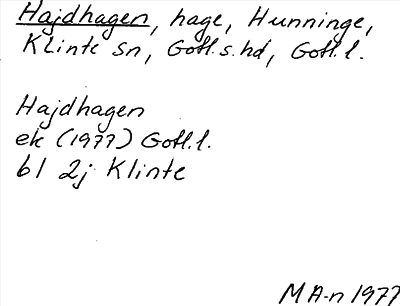 Hajdhagen, hage, Hunninge,
Klinte sn, Gotl.s.hd, Gotl.l.
Hajdhagen
ek (1977) Gotl.l.
bl 2j Klinte
MA-n 1977